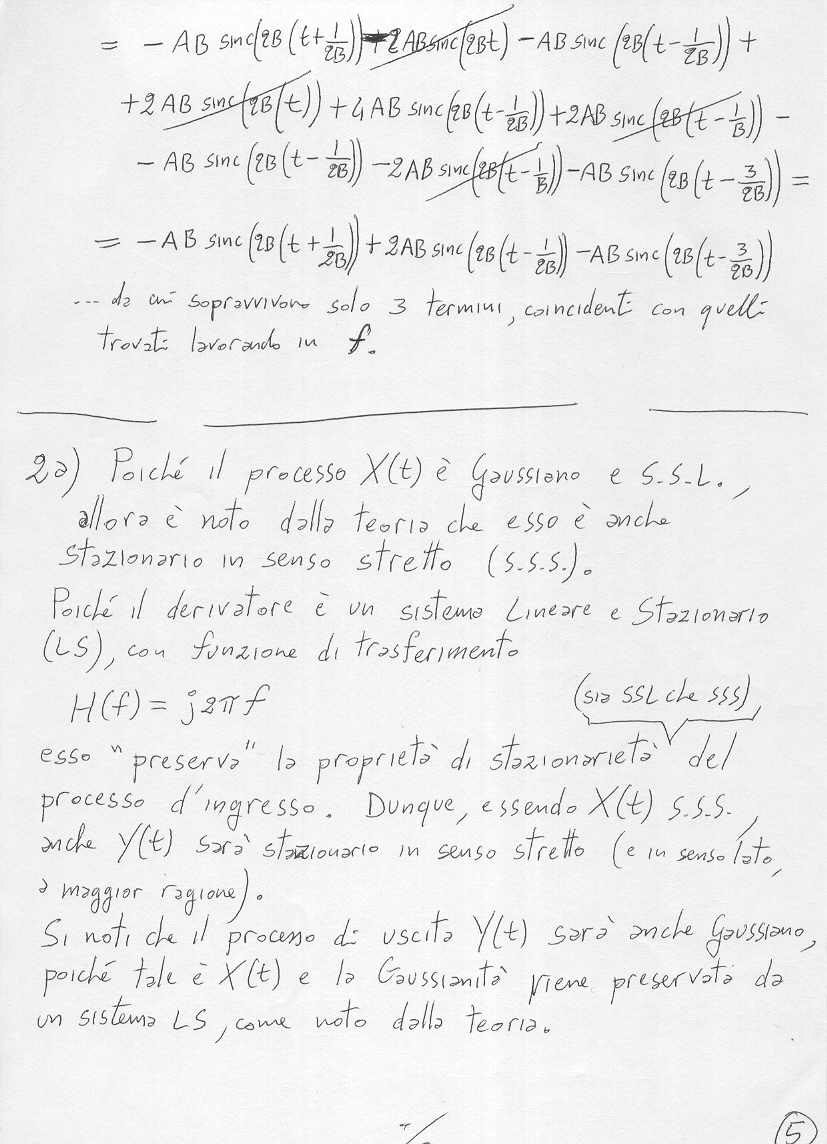 = - AB sinc(2B(t+1/2B)) + 2AB sinc(2Bt) - AB sinc(2B(t-1/2B)) +
+2AB sinc(2B(t)) + 4AB sinc(2B(t-1/2B)) + 2AB sinc(2B(t-1/B)) -
- AB sinc(2B(t-1/2B)) - 2AB sinc(2B(t-1/B)) - AB sinc(2B(t-3/2B)) =
= - AB sinc(2B(t+1/2B)) + 2AB sinc(2B(t-1/2B)) - AB sinc(2B(t-3/2B))
... da cui sopravvivono solo 3 termini, coincidenti con quelli
trovati lavorando in f.
2a) Poiché il processo X(t) è Gaussiano e S.S.L.,
allora è noto dalla teoria che esso è anche
stazionario in senso stretto (S.S.S.).
Poiché il derivatore è un sistema Lineare e Stazionario
(LS), con funzione di trasferimento
H(f) = j2πf
(sia SSL che SSS),
esso "preserva" la proprietà di stazionarietà del
processo d'ingresso. Dunque, essendo X(t) S.S.S.,
anche Y(t) sarà stazionario in senso stretto (e in senso lato,
a maggior ragione).
Si noti che il processo di uscita Y(t) sarà anche Gaussiano,
poiché tale è X(t) e la Gaussianità viene preservata da
un sistema LS, come noto dalla teoria.
5